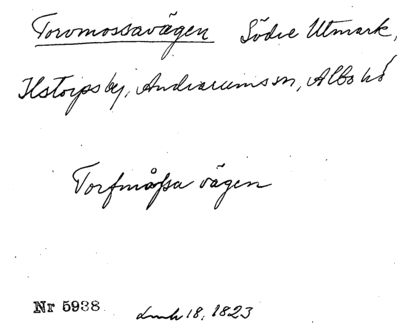 Torvmossavägen Södre Utmark,
Ilstorps by, Andrarums sn, Albo hd
Torfmåssa vägen
Nr 5938 lmh 18, 1823